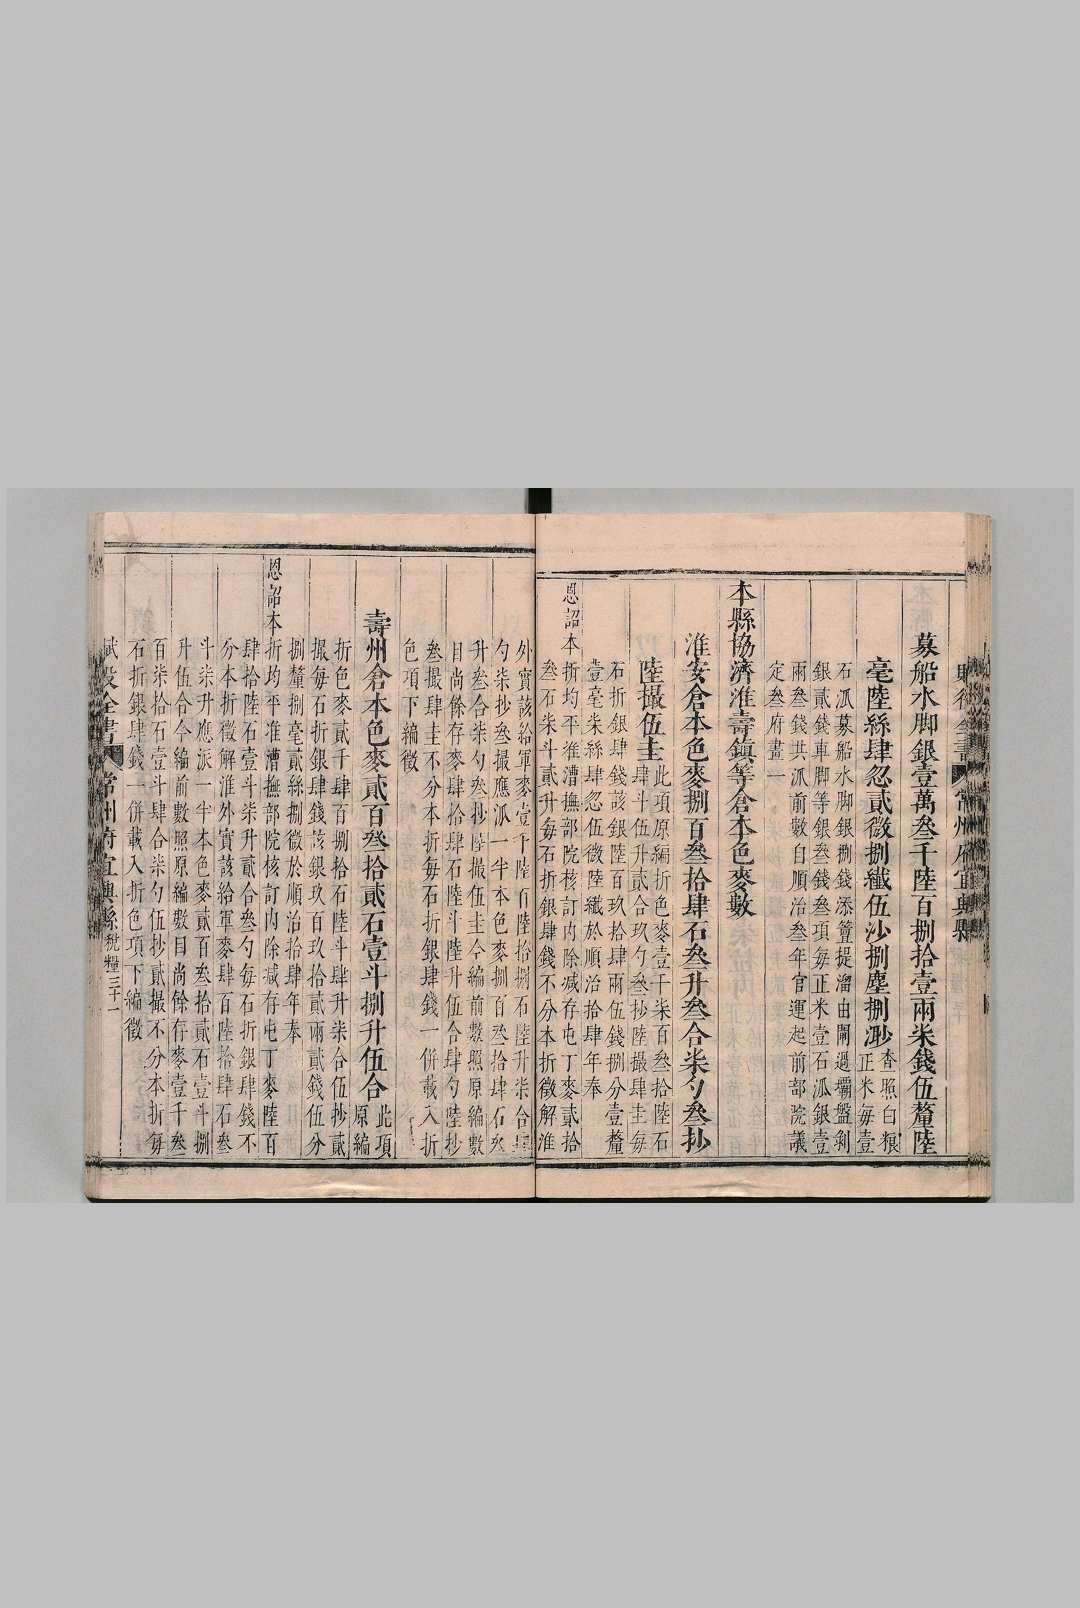 募船水脚銀壹萬叁千陸百捌拾壹兩柒錢伍釐陸
毫陸絲肆忽貳微捌纖伍沙捌塵捌渺
查照白糧
正米每壹
石派募船水脚銀捌錢添簦提溜由閘過壩盤剝
銀貳錢車脚等銀叁錢叁項每正米壹石派銀壹
兩叁錢共派前數自順治叁年官運起前部院議
定叁府畫一
本縣協濟淮壽鎮等倉本色麥數
淮安倉本色麥捌百叁拾肆石叁升叁合柒勺叁抄
陸撮伍圭
此項原編折色麥壹千柒百叁拾陸石
肆斗伍升貳合玖勺叁抄陸撮肆圭每
石折銀肆錢該銀陸百玖拾肆兩伍錢捌分壹釐
壹毫柒絲肆忽伍微陸纖於順治拾肆年奉
恩詔本折均平淮漕撫部院核訂内除減存屯丁麥貳拾
叁石柒斗貳升每石折銀肆錢不分本折徵解淮
外實該給軍麥壹千陸百陸拾捌石陸升柒合
勺柒抄叁撮應派一半本色麥捌百叁拾肆石叁
升叁合柒勺叁抄陸撮伍圭今編前數照原編數
目尚餘存麥肆拾肆石陸斗陸升伍合肆勺陸抄
叁撮肆圭不分本折每石折銀肆錢一併載入折
色項下編徵
壽州倉本色麥貳百叁拾貳石壹斗捌升伍合
此項
原編
折色麥貳千肆百捌拾石陸斗肆升柒合伍抄貳
撮每石折銀肆錢該銀玖百玖拾貳兩貳錢伍分
捌釐捌毫貳絲捌微於順治拾肆年奉
恩詔本折均平淮漕撫部院核訂内除減存屯丁麥陸百
肆拾陸石壹斗柒升貳合叁勺每石折銀肆錢不
分本折徵解淮外實該給軍麥肆百陸拾肆石叁
斗柒升應派一半本色麥貳百叁拾貳石壹斗捌
升伍合今編前數照原編數目尚餘存麥壹千叁
百柒拾石壹斗肆合柒勺伍抄貳撮不分本折每
石折銀肆錢一併載入折色項下編徵
賦役全書 常州府宜興縣 稅糧 三十一